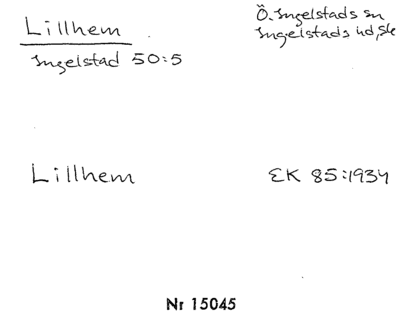 Lillhem
Ö. Ingelstads sn
Ingelstads hd, Sk
Ingelstad 50:5
Lillhem
EK 85:1934
Nr 15045